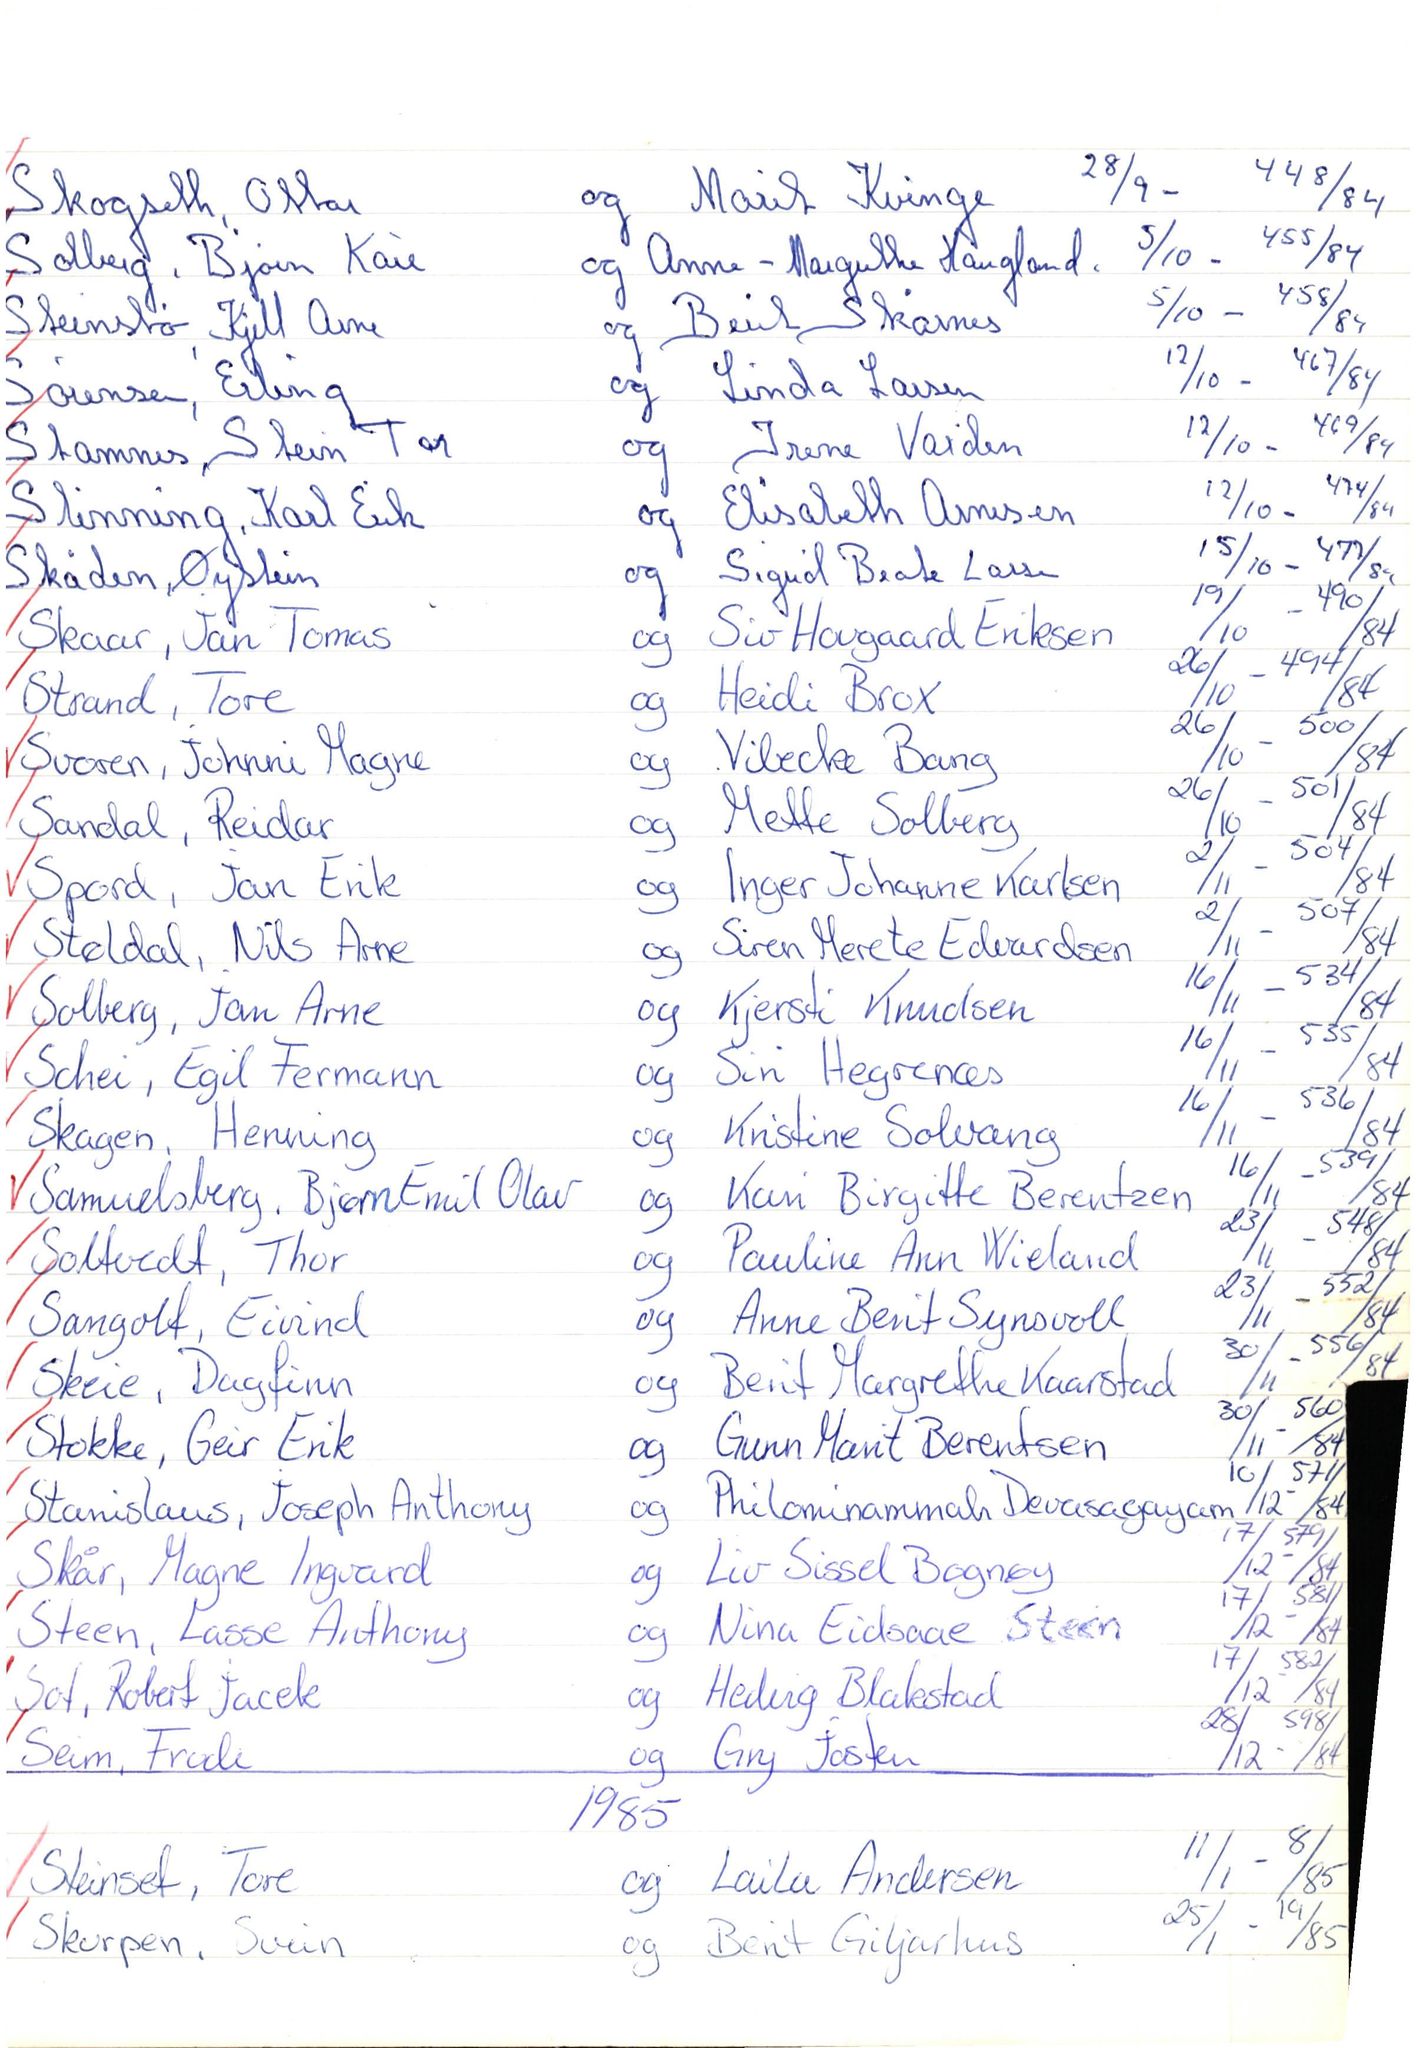 Skogseth, Ottar og Marit Kvinge 28/9 - 448/84
Solberg, Bjørn Kåre og Anne-Margrethe Haugland. 5/10 - 455/84
Steinstø, Kjell Arne og Berit Skårnes 5/10 - 458/84
Sørensen, Erling og Linda Larsen 12/10 - 467/84
Stamnes, Stein Tor og Irene Vaiden 12/10 - 469/84
Stinning, Karl Erik og Elisabeth Arnesen 12/10 - 474/84
Skåden, Øystein og Sigrid Beate Larse 15/10 - 477/84
Skaar, Jan Tomas og Siv Hovgaard Eriksen 19/10 - 490/84
Strand, Tore og Heidi Brox 26/10 - 494/84
Svoren, Johnni Magne og Vibecke Bang 26/10 - 500/84
Sandal, Reidar og Mette Solberg 26/10 - 501/84
Spord, Jan Erik og Inger Johanne Karlsen 2/11 - 504/84
Støldal, Nils Arne og Siren Merete Edvardsen 2/11 - 507/84
Solberg, Jan Arne og Kjersti Knudsen 16/11 - 534/84
Schei, Egil Fermann og Siri Hegrenæs 16/11 - 535/84
Skagen, Henning og Kristine Solvang 16/11 - 536/84
Samuelsberg, Bjørn Emil Olav og Kari Birgitte Berentzen 16/11 - 539/84
Soltvedt, Thor og Pauline Ann Wieland 23/11 - 548/84
Sangolt, Eivind og Anne Berit Synsvoll 23/11 - 552/84
Skeie, Dagfinn og Berit Margrethe Kaarstad 30/11 - 556/84
Stokke, Geir Erik og Gunn Marit Berentsen 30/11 - 560/84
Stanislaus, Joseph Anthony og Philominammah Devasagayam 10/12 - 571/84
Skår, Magne Ingvard og Liv Sissel Bognøy 17/12 - 579/84
Steen, Lasse Anthony og Nina Eidsaae Steen 17/12 - 581/84
Sot, Robert Jacek og Hedvig Blakstad 17/12 - 582/84
Seim, Frode og Gry Josten 28/12 - 598/84
1985
Steinset, Tore og Laila Andersen 11/1 - 8/85
Skorpen, Svein og Berit Giljarhus 25/1 - 19/85